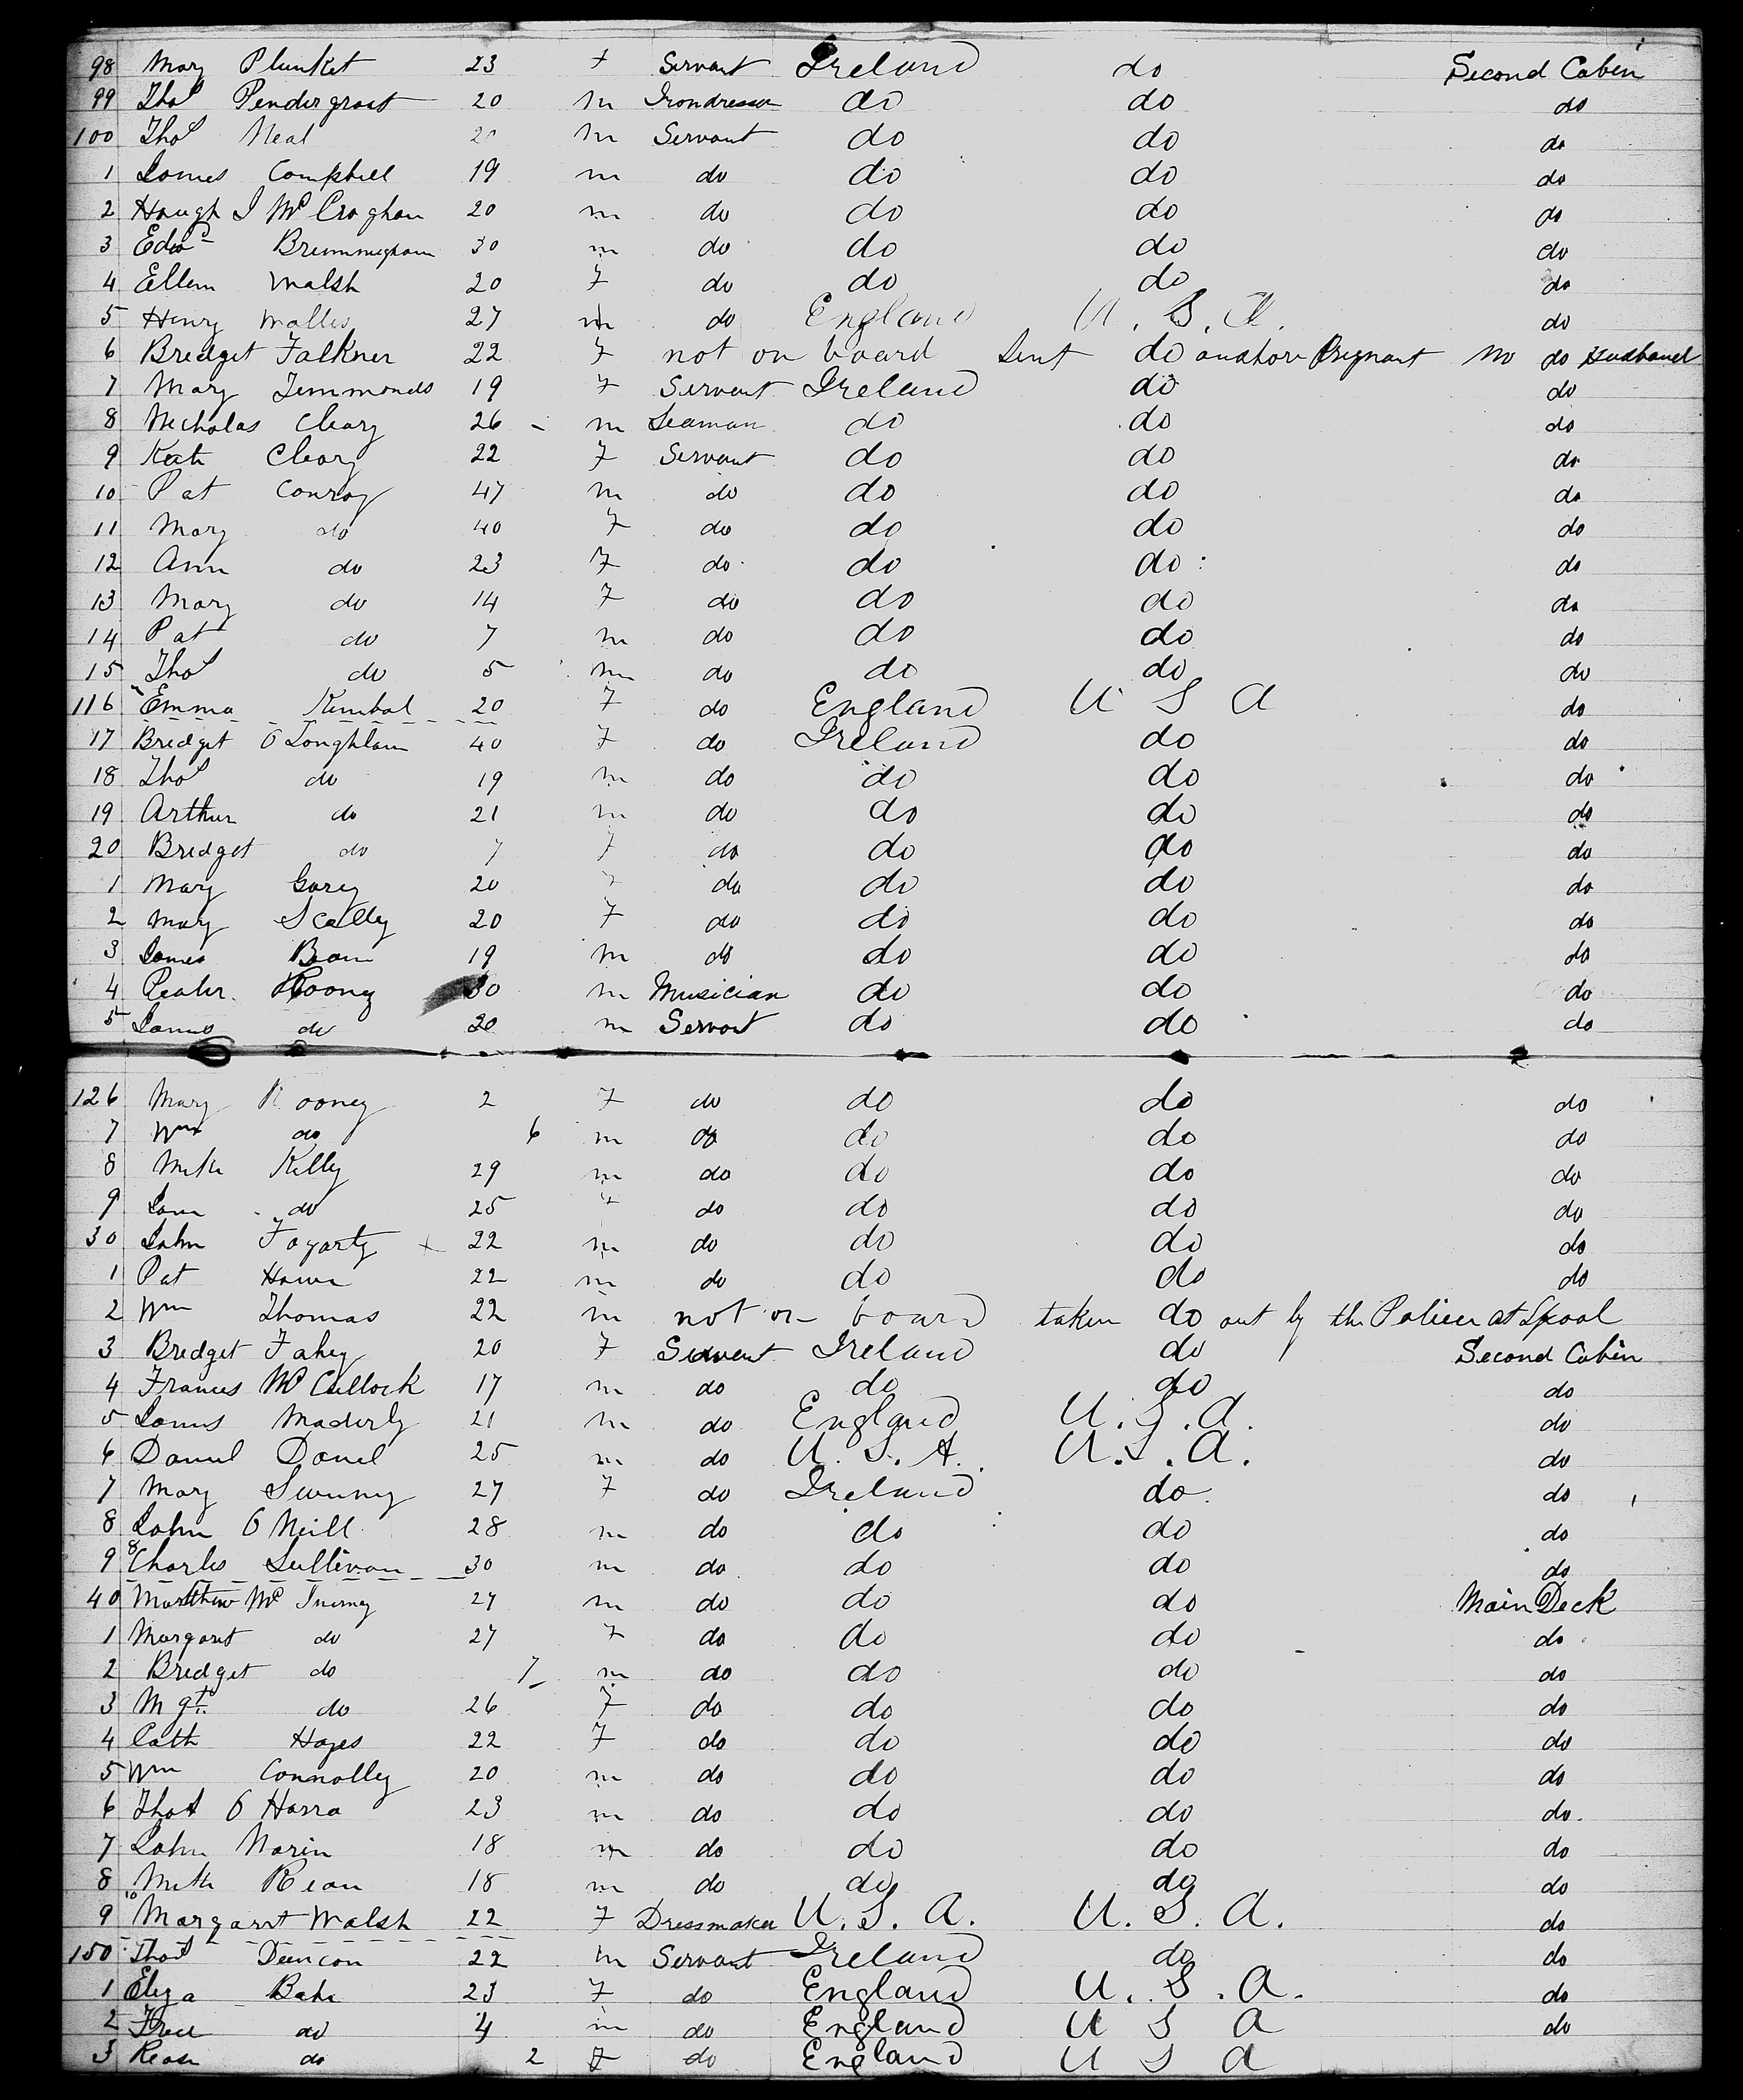 98 Mary Plunket 23 F Servant Ireland do Second Cabin
99 Thos Pendergrast 20 m Irondresser do do do
100 Thos Neal 20 m Servant do do do
1 James Campbell 19 m do do do do
2 Hough J McCroghan 20 m do do do do
3 Edwd Brimmigham 30 m do do do do
4 Ellen Walsh 20 F do do do do
5 Henry Wallis 27 m do England U.S.A. do
6 Bredget Falkner 22 F not on board Sent do Pregnant no do Husband
7 Mary Timmonds 19 F Servant Ireland do do
8 Nicholas Cleary 26 - m Seaman do do do
9 Kate Cleary 22 F Servant do do do
10 Pat Conroy 47 m do do do do
11 Mary do 40 F do do do do
12 Ann do 23 F do do do do
13 Mary do 14 F do do do do
14 Pat do 7 m do do do do
15 Thos do 5 m do do do do
116 Emma Kimbal 20 F do England U S A do
17 Bredget O Loughlan 40 F do Ireland do do
18 Thos do 19 m do do do do
19 Arthur do 21 m do do do do
20 Bredget do 7 F do do do do
1 Mary Garey 20 F do do do do
2 Mary Scally 20 F do do do do
3 James Bean 19 m do do do do
4 Peater Rooney 30 m Musician do do do
5 James do 30 m Servant do do do
126 Mary Rooney 2 F do do do do
7 Wm do 6 m do do do do
8 Mike Kelly 29 m do do do do
9 Jane do 25 F do do do do
30 John Fogarty x 22 m do do do do
1 Pat Hower 22 m do do do do
2 Wm Thomas 22 m not on board taken do out by the Police at Lpool
3 Bredget Fahey 20 F Servant Ireland do Second Cabin
4 Frances McCullock 17 m do do do do
5 James Maderly 21 m do England U.S.A. do
6 Daniel Daniel 25 m do U.S.A. U.S.A. do
7 Mary Swuny 27 F do Ireland do do
8 John O Neill 28 m do do do do
9 Charles Sullivan 30 m do do do do
40 Matthew McInerney 27 m do do do Main Deck
1 Margaret do 27 F do do do do
2 Bredget do 7 m do do do do
3 Mgt do 26 F do do do do
4 Cath Hayes 22 F do do do do
5 Wm Connolley 20 m do do do do
6 Thos O Harra 23 m do do do do
7 John Narin 18 m do do do do
8 Mike Rean 18 m do do do do
9 Margaret Walsh 22 F Dressmaker U.S.A. U.S.A. do
150 Thos Deincon 22 m Servant Ireland do do
1 Eliza Bake 23 F do England U.S.A. do
2 Fred do 4 m do England U S A do
3 Rose do 2 F do England U S A